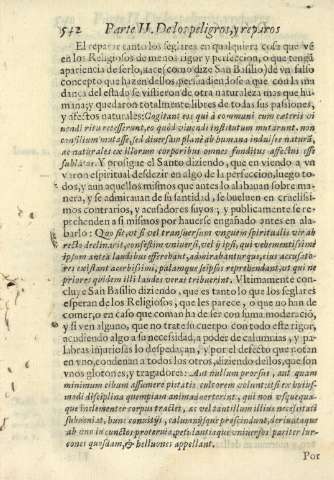 542 Parte II. De los peligros, y reparos
El reparar tanto los seglares en qualquiera cosa que vè
en los Religiosos de menos rigor y perfeccion, o que tenga
apariencia de serlo, nace (como dize San Basilio) de vn falso
concepto que hazen dellos, persuadiendose a que con la mu
dança del estado se vistieron de otra naturaleza mas que hu
mana; y quedaron totalmente libres de todas sus passiones,
y afectos naturales: Cogitant eos qui à communi cum cæteris vi
uendi ritu recesserunt, eo quòd viuendi institutum mutarunt, non
consilium modò esse, sed aduersum planè ab humana induisse naturā,
ac naturales ex illorum corporibus omnes funditus affectus esse
sublatos. Y prosigue el Santo diziendo, que en viendo a vn
varon espiritual desdezir en algo de la perfeccion, luego to-
dos, y aun aquellos mismos que antes lo alabauan sobre ma-
nera, y se admirauan de su santidad, se bueluen en cruelissi-
mos contrarios, y acusadores suyos; y publicamente se re-
prehenden a si mismos por hauerse engañado antes en ala-
barlo: Quo fit, vt si vel transuersum vnguem spiritualis vir ab
recto declinarit, confestim vniuersi, vel ij ipsi, qui vehementissimè
ipsum antea laudibus efferebant, admirabanturque, eius accusato-
res existant acerbissimi, palamque seipsos reprehendant, vt qui ne
priores quidem illi laudes verè tribuerint. Vltimamente con-
cluye San Basilio diziendo, que es tanto lo que los seglares
esperan de los Religiosos, que les parece, o que no han de
comer, o en caso que coman ha de ser con suma moderació,
y si ven alguno, que no trate su cuerpo con todo este rigor,
acudiendo algo a su necessidad, a poder de calumnias, y pa-
labras injuriosas lo despedaçan, y por el defecto que notan
en vno, condenan a todos los otros, diziendo dellos, que son
vnos glotones, y tragadores: Aut nullum prorsus, aut quam
minimum cibum assumere pietatis cultorem volunt: et si ex huius-
modi disciplina quempiam animaduerterint, qui non vsquequa-
que inclementer corpus tractet, ac vel tantillum illius necessitati
subueniat, hunc conuitijs, calumnijsque proscindunt, deriuataque
ab vno in cunctos protervia, petulantiaque vniuersos pariter lur-
cones quosdam, & helluones appellant.
Por